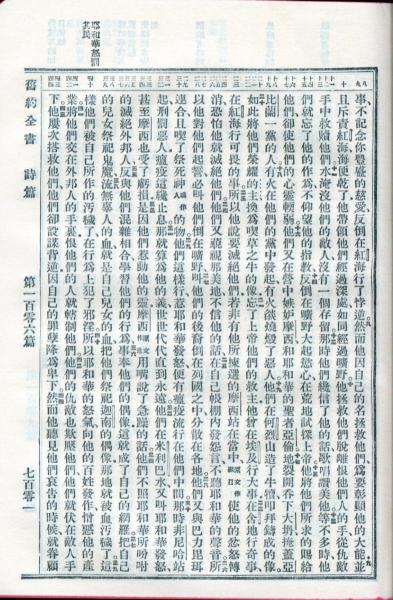 耶和華怒罰
其民
事不記念你豐盛的慈愛反倒在紅海行了悖逆然而他因自己的名拯救他們爲要彰顯他的大能並
且斥責紅海海便乾了他帶領他們經過深處如同經過曠野他拯救他們脫離恨他們人的手從仇敵
手中救贖他們水淹沒他們的敵人沒有一個存留那時他們纔信了他的話歌唱讚美他等不多時他
們就忘了他的作爲不仰望他的指教反倒在曠野大起慾心在荒地試探上帝他將他們所求的賜給
他們卻使他們的心靈軟弱他們又在營中嫉妒摩西和耶和華的聖者亞倫地裂開吞下大坍掩蓋亞
比蘭一黨的人有火在他們的黨中發起有火燄燒燬了惡人他們在何烈山造了牛犢叩拜鑄成的像
如此將他們榮耀的主換爲喫草之牛的像忘了上帝他們的救主他曾在埃及行大事在含地行奇事
在紅海行可畏的事所以他說要滅絕他們若非有他所揀選的摩西站在當中原文作破口使他的忿怒轉
消恐怕他就滅絕他們他們又藐視那美地不信他的話在自己帳棚內發怨言不聽耶和華的聲音所
以他對他們起誓必叫他們倒在曠野叫他們的後裔倒在列國之中分散在各地他們又與巴力毘珥
連合且喫了祭死神人或作的物他們這樣行惹耶和華發怒便有瘟疫流行在他們中間那時非尼哈站
起刑罰惡人瘟疫這纔止息那就算爲他的義世世代代直到永遠他們在米利巴水又叫耶和華發怒
甚至摩西也受了虧損是因他們惹動他的靈摩西原文作他用嘴說了急躁的話他們不照耶和華所吩咐
的滅絕外邦人反與他們混雜相合學習他們的行爲事奉他們的偶像這就成了自己的網羅把自己
的兒女祭祀鬼魔流無辜人的血就是自己兒女的血把他們祭祀迦南的偶像那地就被血汚穢了這
樣他們被自己所作的汚穢了在行爲上犯了邪淫所以耶和華的怒氣向他的百姓發作憎惡他的產
業將他們交在外邦人的手裏恨他們的人就轄制他們他們的仇敵也欺壓他們他們就伏在敵人手
下他屢次搭救他們他們卻設謀背逆因自己的罪孽降爲卑下然而他聽見他們哀告的時候就眷顧
舊約全書 詩篇 第一百零六篇 七百零一